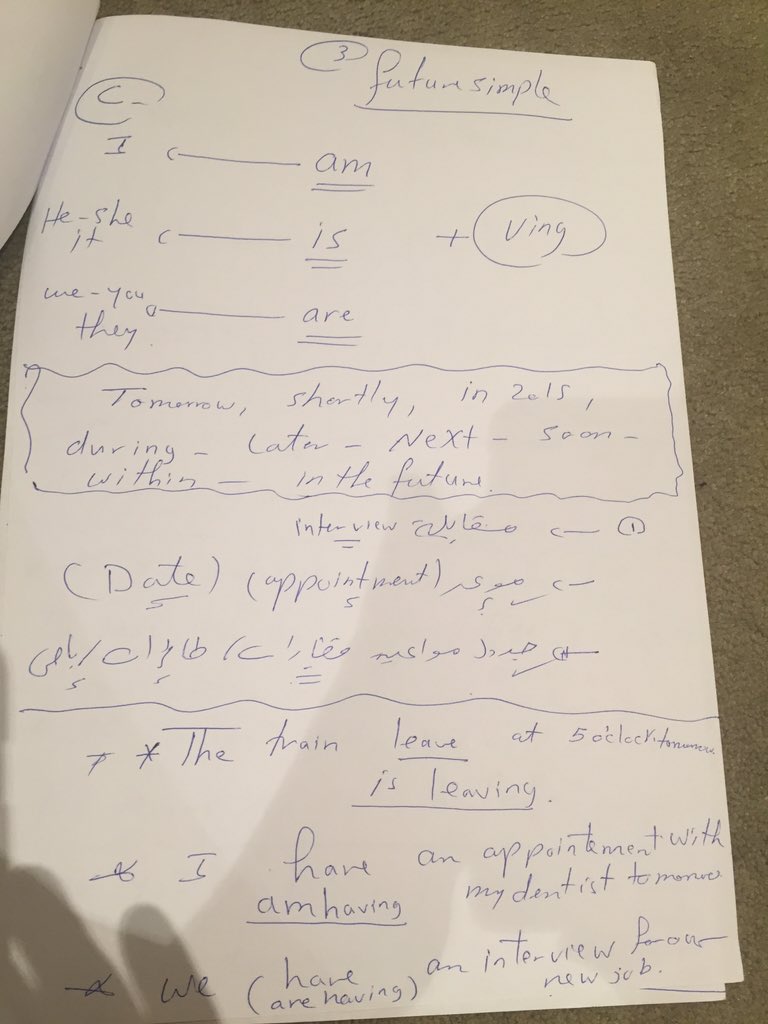 ③ future simple
C-
I ← am
He-she
it ← is + Ving
we-you
they ← are
Tomorrow, shortly, in 2015,
during - Later - Next - soon -
within - in the future.
① ← مقابلة interview
← موعد (appointment) (Date)
← جدول مواعيد قطارات / طائرات /
* The train leave at 5 o'clock tomorrow
is leaving.
* I have an appointement with
my dentist tomorrow
am having
* we (have an interview for our
(are having) new job.